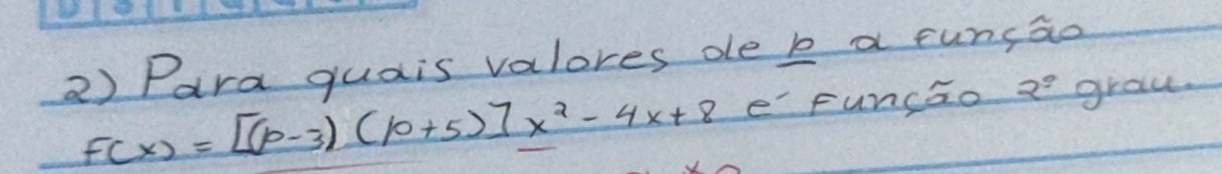 2) Para quais valores de p a função
f(x) = [(p-3) (p+5)] x² - 4x + 8 é função 2° grau.